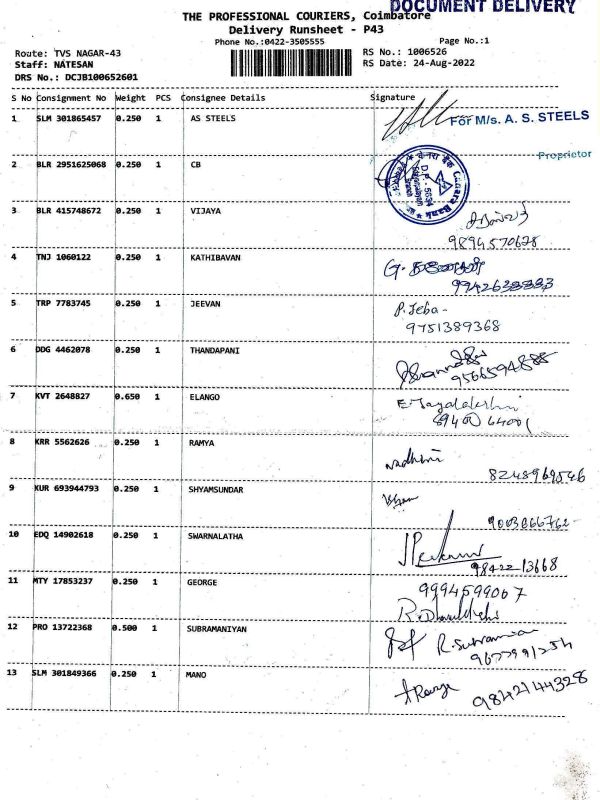 DOCUMENT DELIVERY
THE PROFESSIONAL COURIERS, Coimbatore
Delivery Runsheet - P43
Phone No.:0422-3505555 Page No.:1
Route: TVS NAGAR-43 RS No.: 1006526
Staff: NATESAN RS Date: 24-Aug-2022
DRS No.: DCJB100652601
S No Consignment No Weight PCS Consignee Details Signature
1 SLM 301865457 0.250 1 AS STEELS For M/s. A. S. STEELS
Proprietor
2 BLR 2951625068 0.250 1 CB Canara Bank
3 BLR 415748672 0.250 1 VIJAYA
9894570678
4 TNJ 1060122 0.250 1 KATHIBAVAN G.
5 TRP 7783745 0.250 1 JEEVAN P. Jeba-
9751389368
6 DDG 4462078 0.250 1 THANDAPANI
9566594885
7 KVT 2648827 0.650 1 ELANGO E. Jayalakshmi
8 KRR 5562626 0.250 1 RAMYA
8248969546
9 KUR 693944793 0.250 1 SHYAMSUNDAR
10 EDQ 14902618 0.250 1 SWARNALATHA
9842213668
11 MTY 17853237 0.250 1 GEORGE 9994599067
12 PRO 13722368 0.500 1 SUBRAMANIYAN R. Subramanian
9677991254
13 SLM 301849366 0.250 1 MANO 9842144328